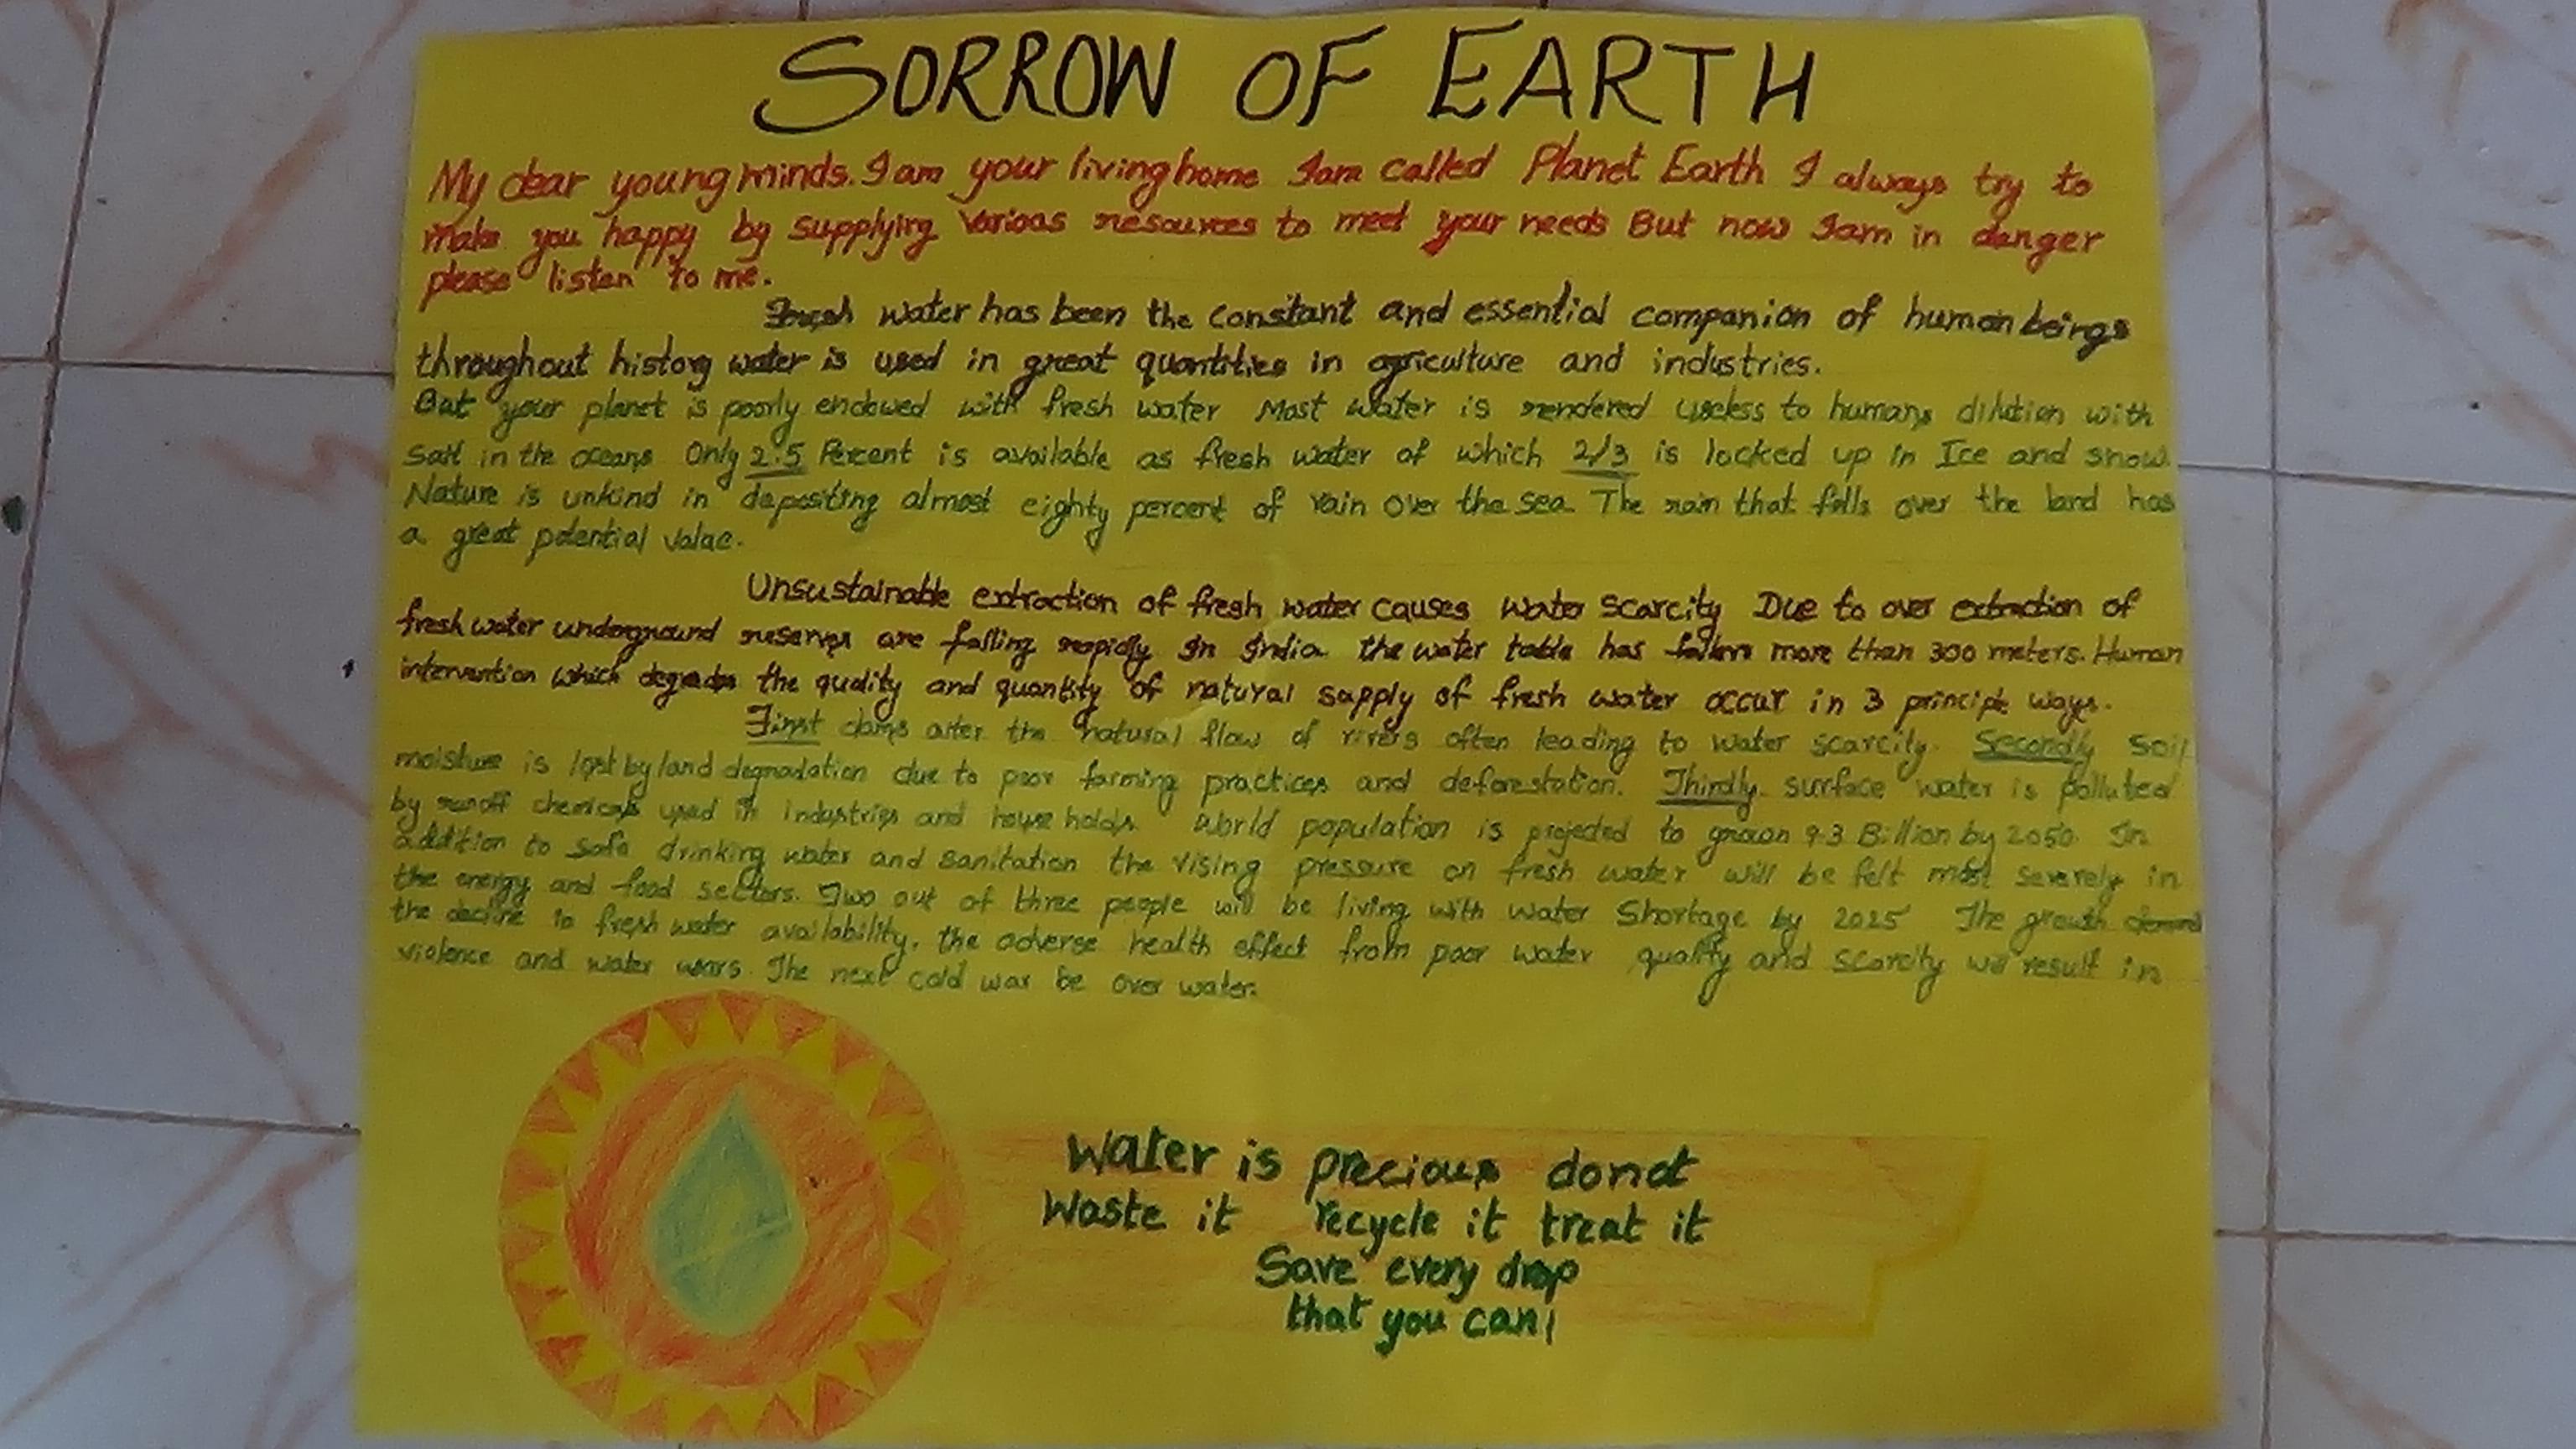 SORROW OF EARTH
My dear young minds. I am your living home I am called Planet Earth I always try to
make you happy by supplying various resources to meet your needs But now I am in danger
please listen to me.
Fresh water has been the constant and essential companion of human beings
throughout history water is used in great quantities in agriculture and industries.
But your planet is poorly endowed with fresh water Most water is rendered useless to humans dilution with
salt in the oceans Only 2.5 Percent is available as fresh water of which 2/3 is locked up in Ice and snow.
Nature is unkind in depositing almost eighty percent of rain over the sea. The rain that falls over the land has
a great potential value.
Unsustainable extraction of fresh water causes water scarcity Due to over extraction of
fresh water underground reserves are falling rapidly In India the water table has fallen more than 300 meters. Human
intervention which degrades the quality and quantity of natural supply of fresh water occur in 3 principle ways.
First dams alter the natural flow of rivers often leading to water scarcity. Secondly soil
moisture is lost by land degradation due to poor farming practices and deforestation. Thirdly surface water is polluted
by runoff chemicals used in industries and house holds. World population is projected to grown 9.3 Billion by 2050. In
addition to safe drinking water and sanitation the rising pressure on fresh water will be felt most severely in
the energy and food sectors. Two out of three people will be living with water shortage by 2025 The growth demand
the decline in fresh water availability, the adverse health effect from poor water quality and scarcity will result in
violence and water wars. The next cold war be over water.
Water is precious donot
Waste it recycle it treat it
Save every drop
that you can!